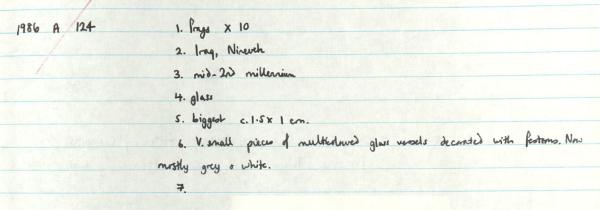 1986 A 124 1. Frags x 10
2. Iraq, Nineveh
3. mid-2nd millennium
4. glass
5. biggest c.1.5 x 1 cm.
6. V. small pieces of multicoloured glass vessels decorated with festoons. Now
mostly grey & white.
7.